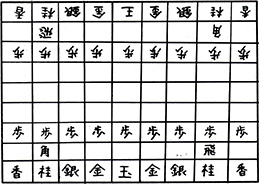 香 桂 銀 金 王 金 銀 桂 香
飛 角
歩 歩 歩 歩 歩 歩 歩 歩 歩
歩 歩 歩 歩 歩 歩 歩 歩 歩
角 飛
香 桂 銀 金 玉 金 銀 桂 香